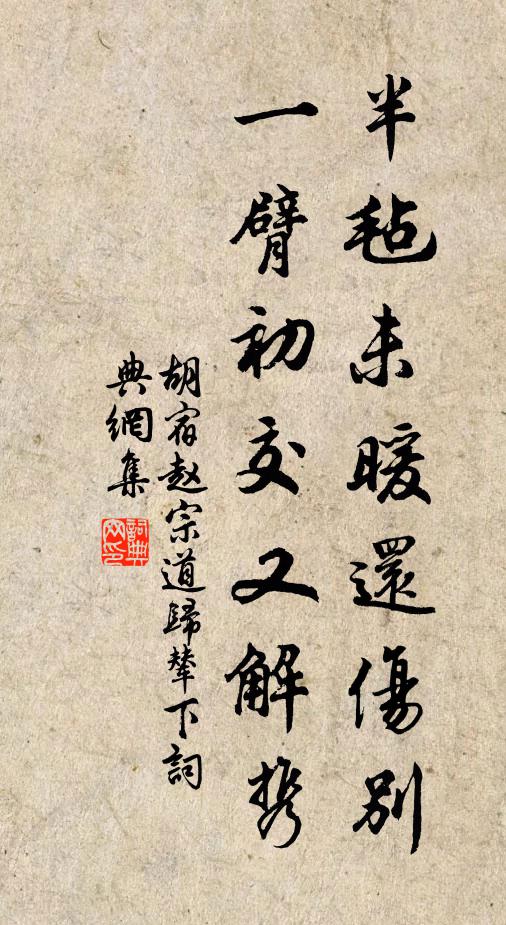 半毡未暖還傷別
一臂初交又解携
胡宿趙宗道歸輦下詞
典網集
詞典网印